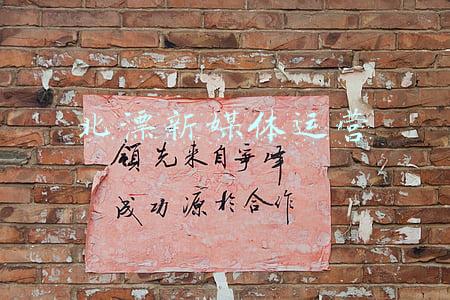 北漂新媒体运营
領先来自争峰
成功源於合作